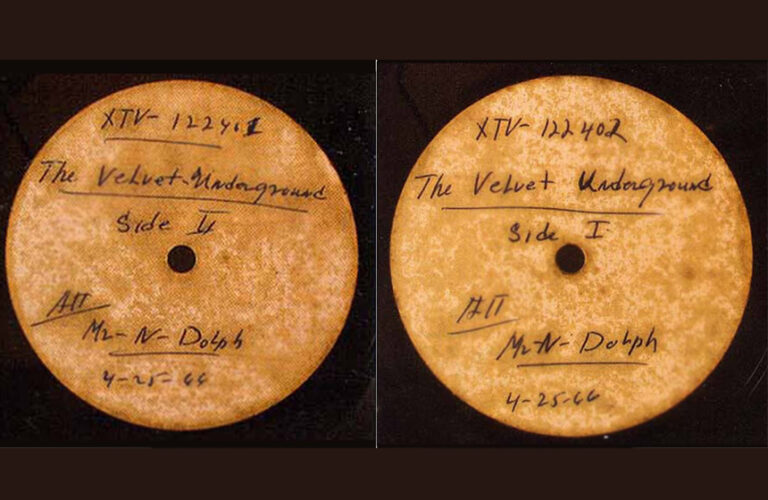 XTV- 122401
The Velvet Underground
Side II
Att
Mr- N- Dolph
4-25-66
XTV- 122402
The Velvet Underground
Side I
Att
Mr- N- Dolph
4-25-66